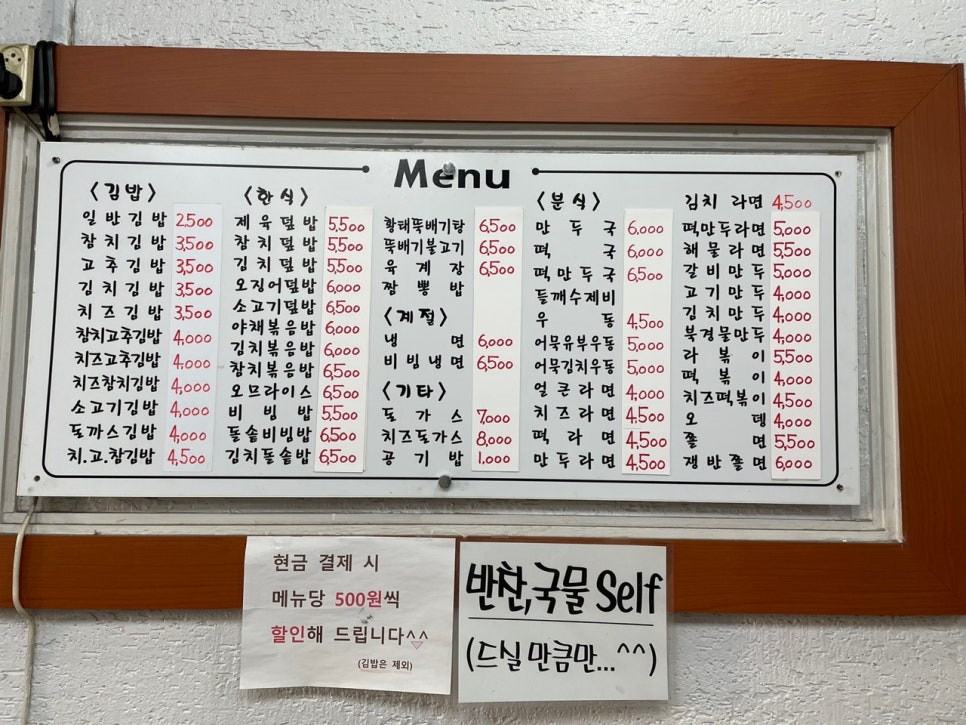 Menu
〈김밥〉
일반김밥 2,500
참치김밥 3,500
고추김밥 3,500
김치김밥 3,500
치즈김밥 3,500
참치고추김밥 4,000
치즈고추김밥 4,000
치즈참치김밥 4,000
소고기김밥 4,000
돈까스김밥 4,000
치.고.참김밥 4,500
〈한식〉
제육덮밥 5,500
참치덮밥 5,500
김치덮밥 5,500
오징어덮밥 6,000
소고기덮밥 6,500
야채볶음밥 6,000
김치볶음밥 6,000
참치볶음밥 6,500
오므라이스 6,500
비빔밥 5,500
돌솥비빔밥 6,500
김치돌솥밥 6,500
황태뚝배기탕 6,500
뚝배기불고기 6,500
육계장 6,500
짬뽕밥
〈계절〉
냉면 6,000
비빔냉면 6,500
〈기타〉
돈가스 7,000
치즈돈가스 8,000
공기밥 1,000
〈분식〉
만두국 6,000
떡국 6,000
떡만두국 6,500
들깨수제비
우동 4,500
어묵유부우동 5,000
어묵김치우동 5,000
얼큰라면 4,000
치즈라면 4,500
떡라면 4,500
만두라면 4,500
김치라면 4,500
떡만두라면 5,000
해물라면 5,500
갈비만두 5,000
고기만두 4,000
김치만두 4,000
북경물만두 4,000
라볶이 5,500
떡볶이 4,000
치즈떡볶이 4,500
오뎅 4,000
쫄면 5,500
쟁반쫄면 6,000
현금 결제 시
메뉴당 500원씩
할인해 드립니다^^
(김밥은 제외)
반찬,국물 Self
(드실 만큼만...^^)